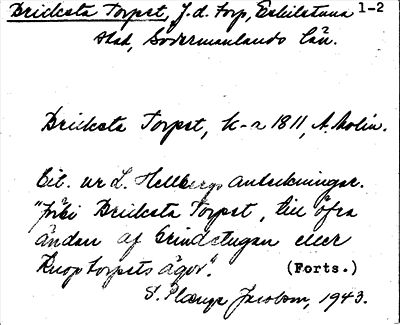 Bricksta Torpet, f.d. torp, Eskilstuna 1-2
stad, Södermanlands län.
Bricksta Torpet, k-a 1811, A. Molin.
Cit. ur L. Hellbergs anteckningar.
"förbi Bricksta Torpet, till öfra
ändan af Grindstugan eller
Knoptorpets ägor". (Forts.)
S. Jacobson, 1943.